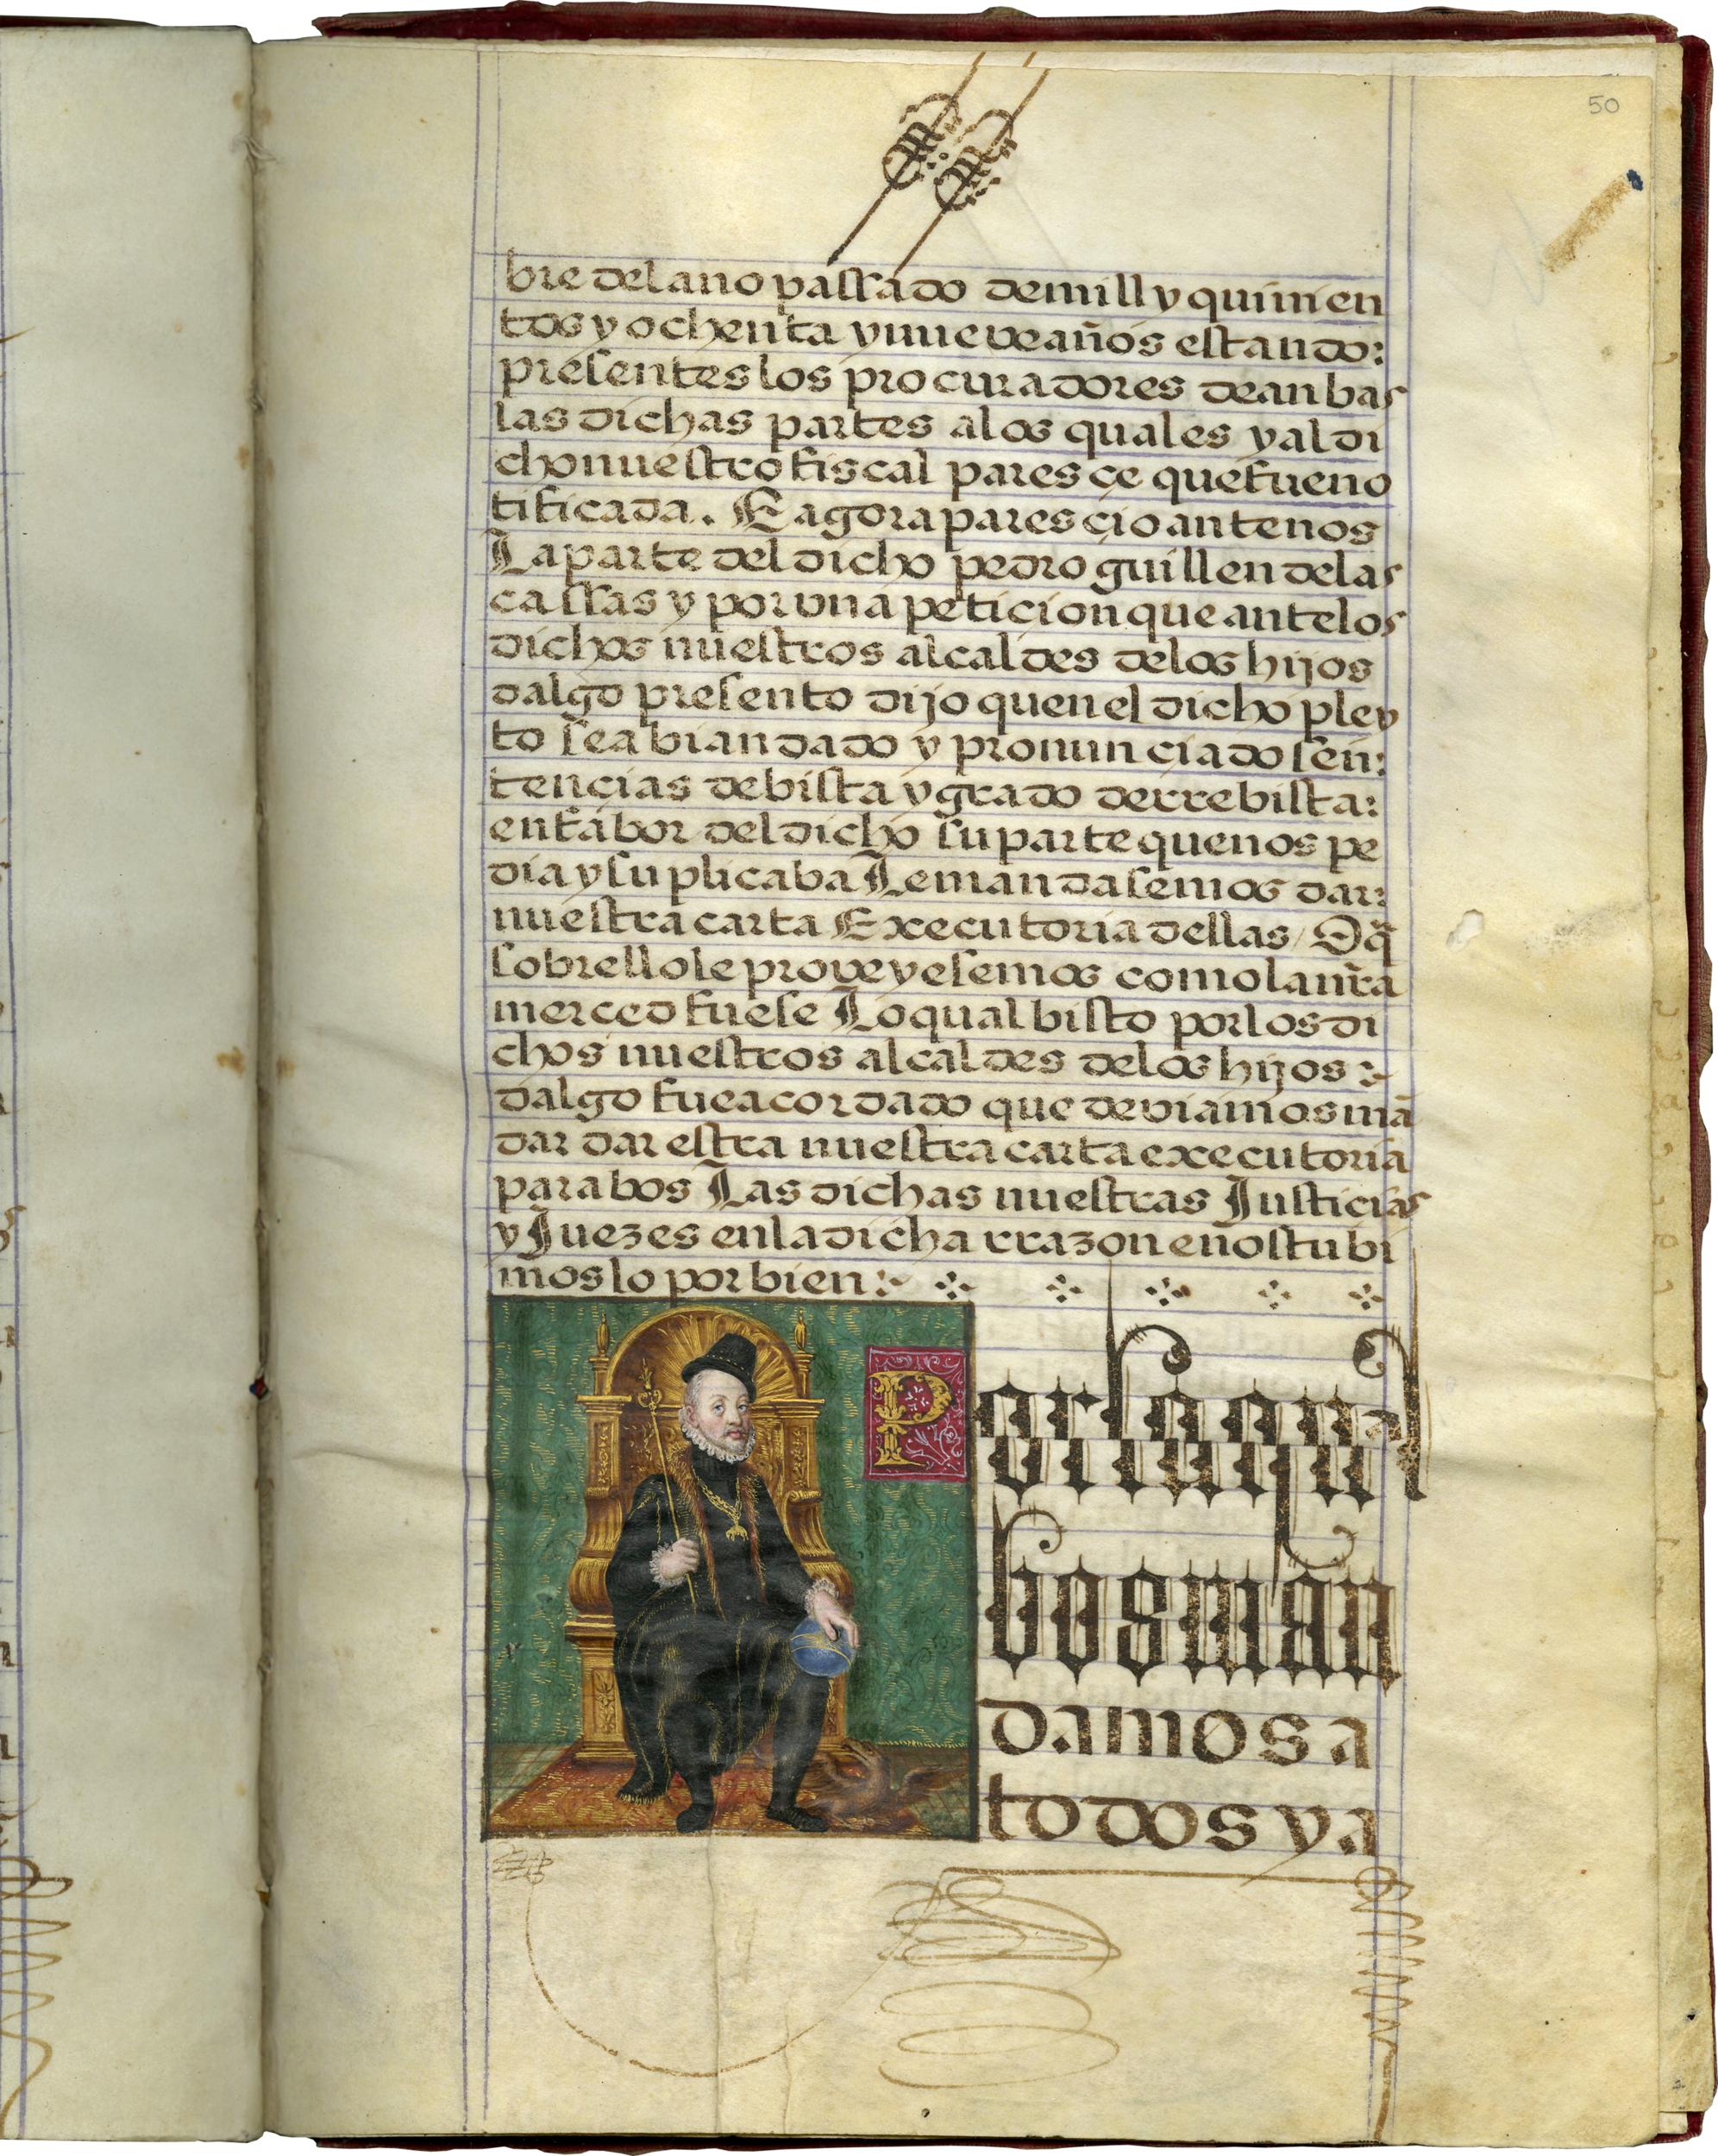 50
bre del ano passado de mill y quinien
tos y ochenta y nueve años estando:
presentes los procuradores de anbas
las dichas partes a los quales y al di
cho nuestro fiscal paresçe que fue no
tificada. E agora paresçio ante nos
La parte del dicho pedro guillen de las
cassas y por vna petiçion que ante los
dichos nuestros alcaldes de los hijos
dalgo presento dijo quen el dicho pley
to se abian dado y pronunçiado sen:
tençias de bista y grado de rrebista:
en fabor del dicho su parte que nos pe
dia y suplicaba Le mandasemos dar:
nuestra carta Executoria dellas / O q̃
sobrello le proveyesemos como la nr̃a
merced fuese Lo qual bisto por los di
chos nuestros alcaldes de los hijos :~
dalgo fue acordado que deviamos mã
dar dar estra nuestra carta executoria
para bos Las dichas nuestras Justiçias
y Juezes en la dicha rrazon e nos tubi
mos lo por bien :~
Por la qual
bos man
damos a
todos y a